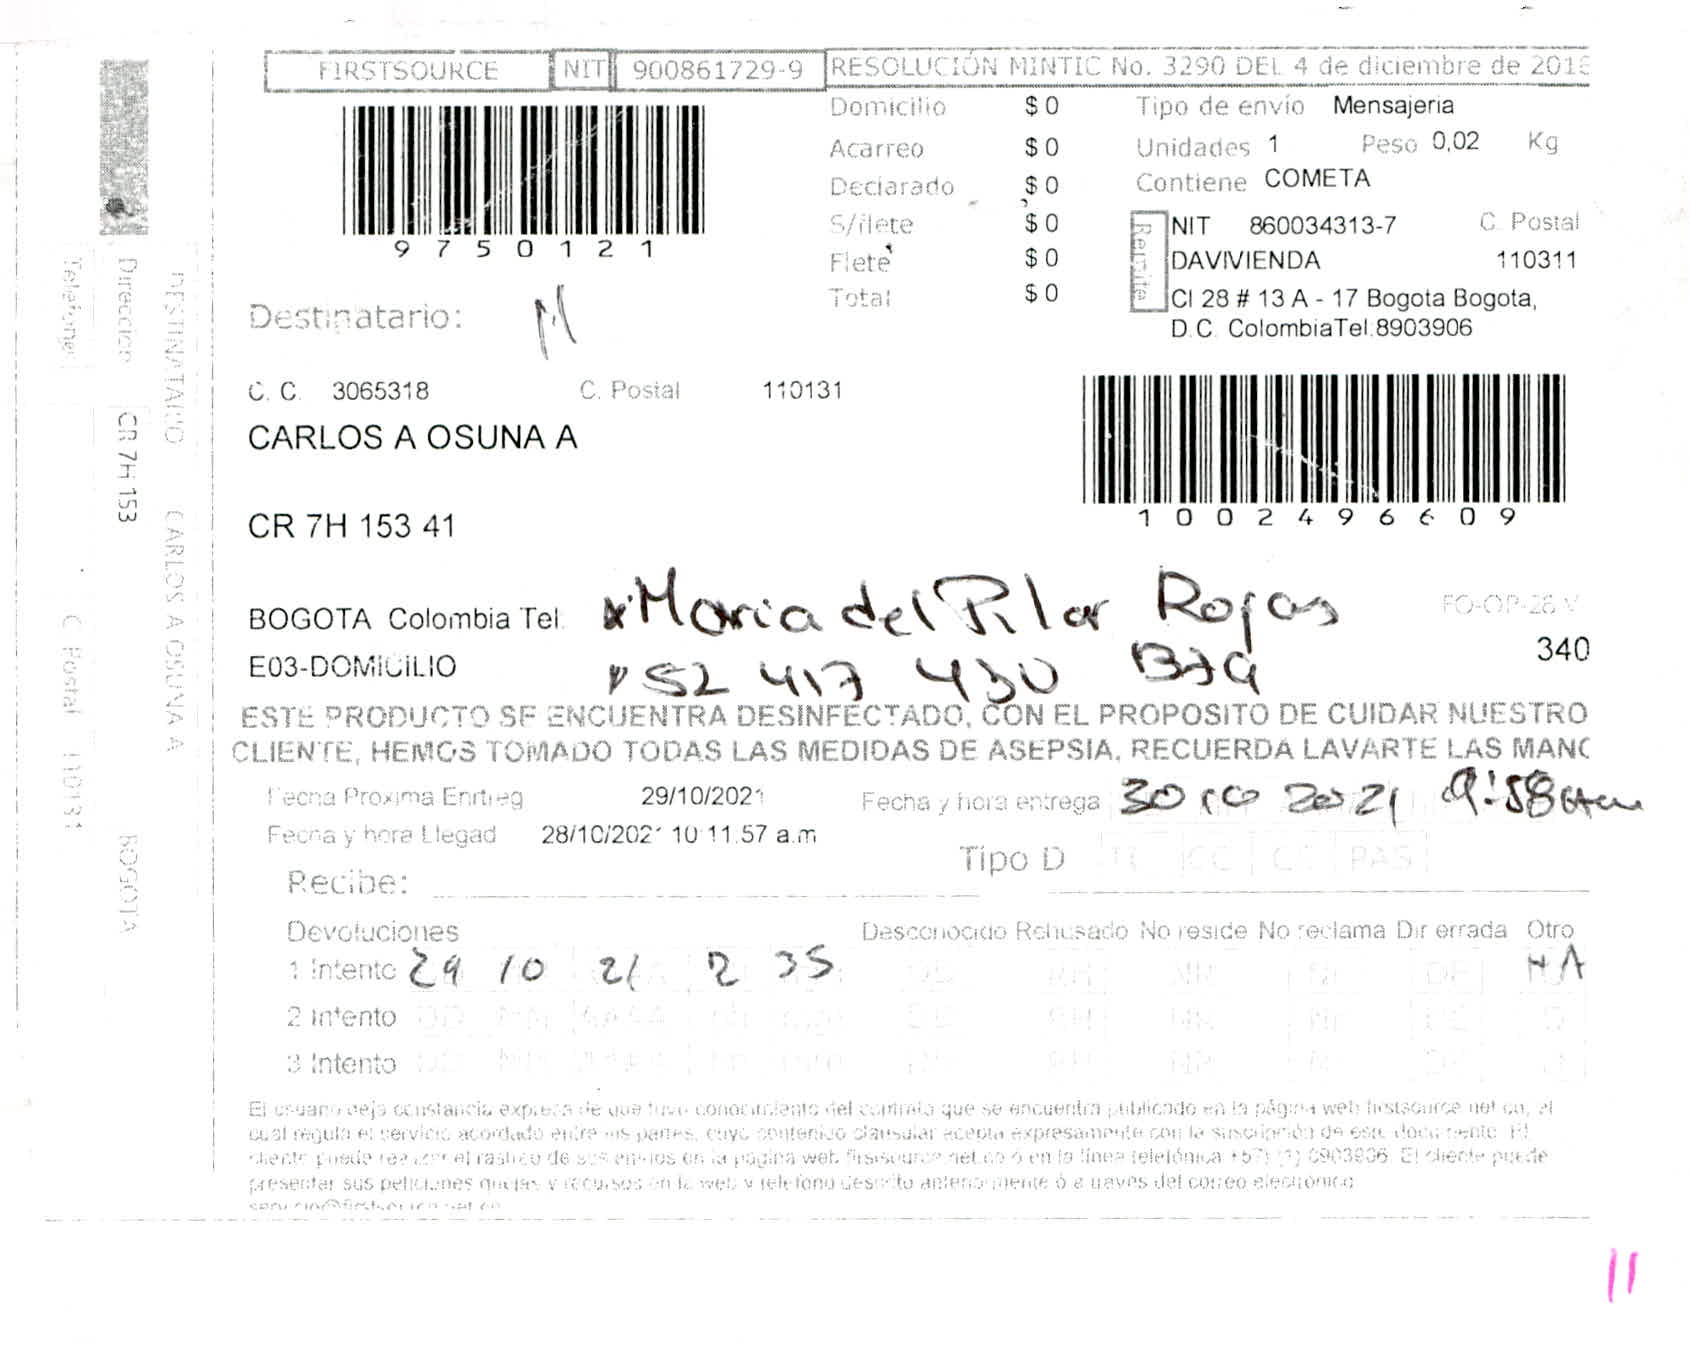 FIRSTSOURCE NIT 900861729-9 RESOLUCIÓN MINTIC No. 3290 DEL 4 de diciembre de 201
9750121
Domicilio $ 0
Acarreo $ 0
Declarado $ 0
S/flete $ 0
Flete $ 0
Total $ 0
Tipo de envío Mensajeria
Unidades 1 Peso 0,02 Kg
Contiene COMETA
Remite
NIT 860034313-7 C. Postal
DAVIVIENDA 110311
Cl 28 # 13 A - 17 Bogota Bogota,
D.C. Colombia Tel.8903906
Destinatario: M
C. C. 3065318 C. Postal 110131
CARLOS A OSUNA A
10024966609
CR 7H 153 41
BOGOTA Colombia Tel:
Maria del Pilar Rojas
FO-OP-28 V
E03-DOMICILIO
52 417 430 Bta
340
ESTE PRODUCTO SE ENCUENTRA DESINFECTADO, CON EL PROPOSITO DE CUIDAR NUESTRO
CLIENTE, HEMOS TOMADO TODAS LAS MEDIDAS DE ASEPSIA, RECUERDA LAVARTE LAS MANO
Fecha Proxima Entreg 29/10/2021
Fecha y hora entrega 30 10 2021 9:58 am
Fecha y hora Llegad 28/10/2021 10:11:57 a.m
Tipo D TI CC CE PAS
Recibe:
Devoluciones Desconocido Rehusado No reside No reclama Dir errada Otro
1 Intento 29 10 21 2 35 NA
2 Intento DD MM AAAA
3 Intento
El usuario deja constancia expresa de que tuvo conocimiento del contrato que se encuentra publicado en la página web firstsource.net.co, el
cual regula el servicio acordado entre las partes, cuyo contenido clausular acepta expresamente con la suscripción de este documento. El
cliente puede realizar el rastreo de sus envios en la página web firstsource.net.co ó en la línea telefónica +57) (1) 8903906. El cliente puede
presentar sus peticiones quejas y recursos en la web y telefono descrito anteriormente ó a traves del correo electrónico
servicio@firstsource.net.co
DESTINATARIO CARLOS A OSUNA A
Direccion CR 7H 153 BOGOTA
Telefono C Postal 110131
11